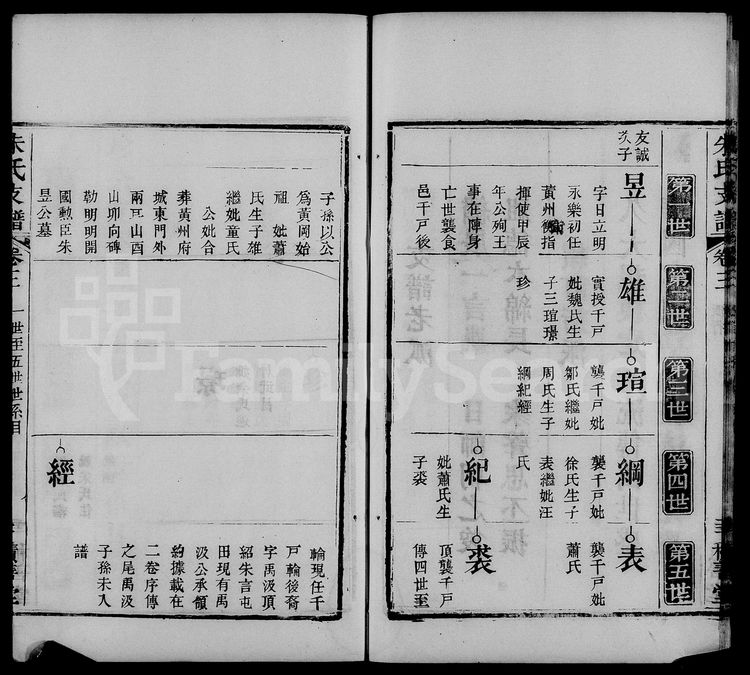 朱氏支譜 卷三
第一世
第二世
第三世
第四世
第五世
友誠
次子
昱
字日立明
永樂初任
黃州衛指
揮使甲辰
年公殉王
事在陣身
亡世襲食
邑千戸後
子孫以公
爲黃岡始
祖 妣蕭
氏生子雄
繼妣童氏
公妣合
葬黃州府
城東門外
兩耳山酉
山卯向碑
勒明明開
國勲臣朱
昱公墓
雄
實授千戸
妣魏氏生
子三瑄璟
珍
瑄
襲千戸妣
鄒氏繼妣
周氏生子
綱紀經
綱
襲千戸妣
徐氏生子
表繼妣汪
氏
表
襲千戸妣
蕭氏
紀
妣蕭氏生
子裘
裘
頂襲千戸
傳四世至
輪現任千
戸輪後裔
字禹汲頂
紹朱言屯
田現有禹
汲公承領
約據載在
二卷序傳
之尾禹汲
子孫未入
譜
經
朱氏支譜 卷三 一世至五世世系目
FamilySearch